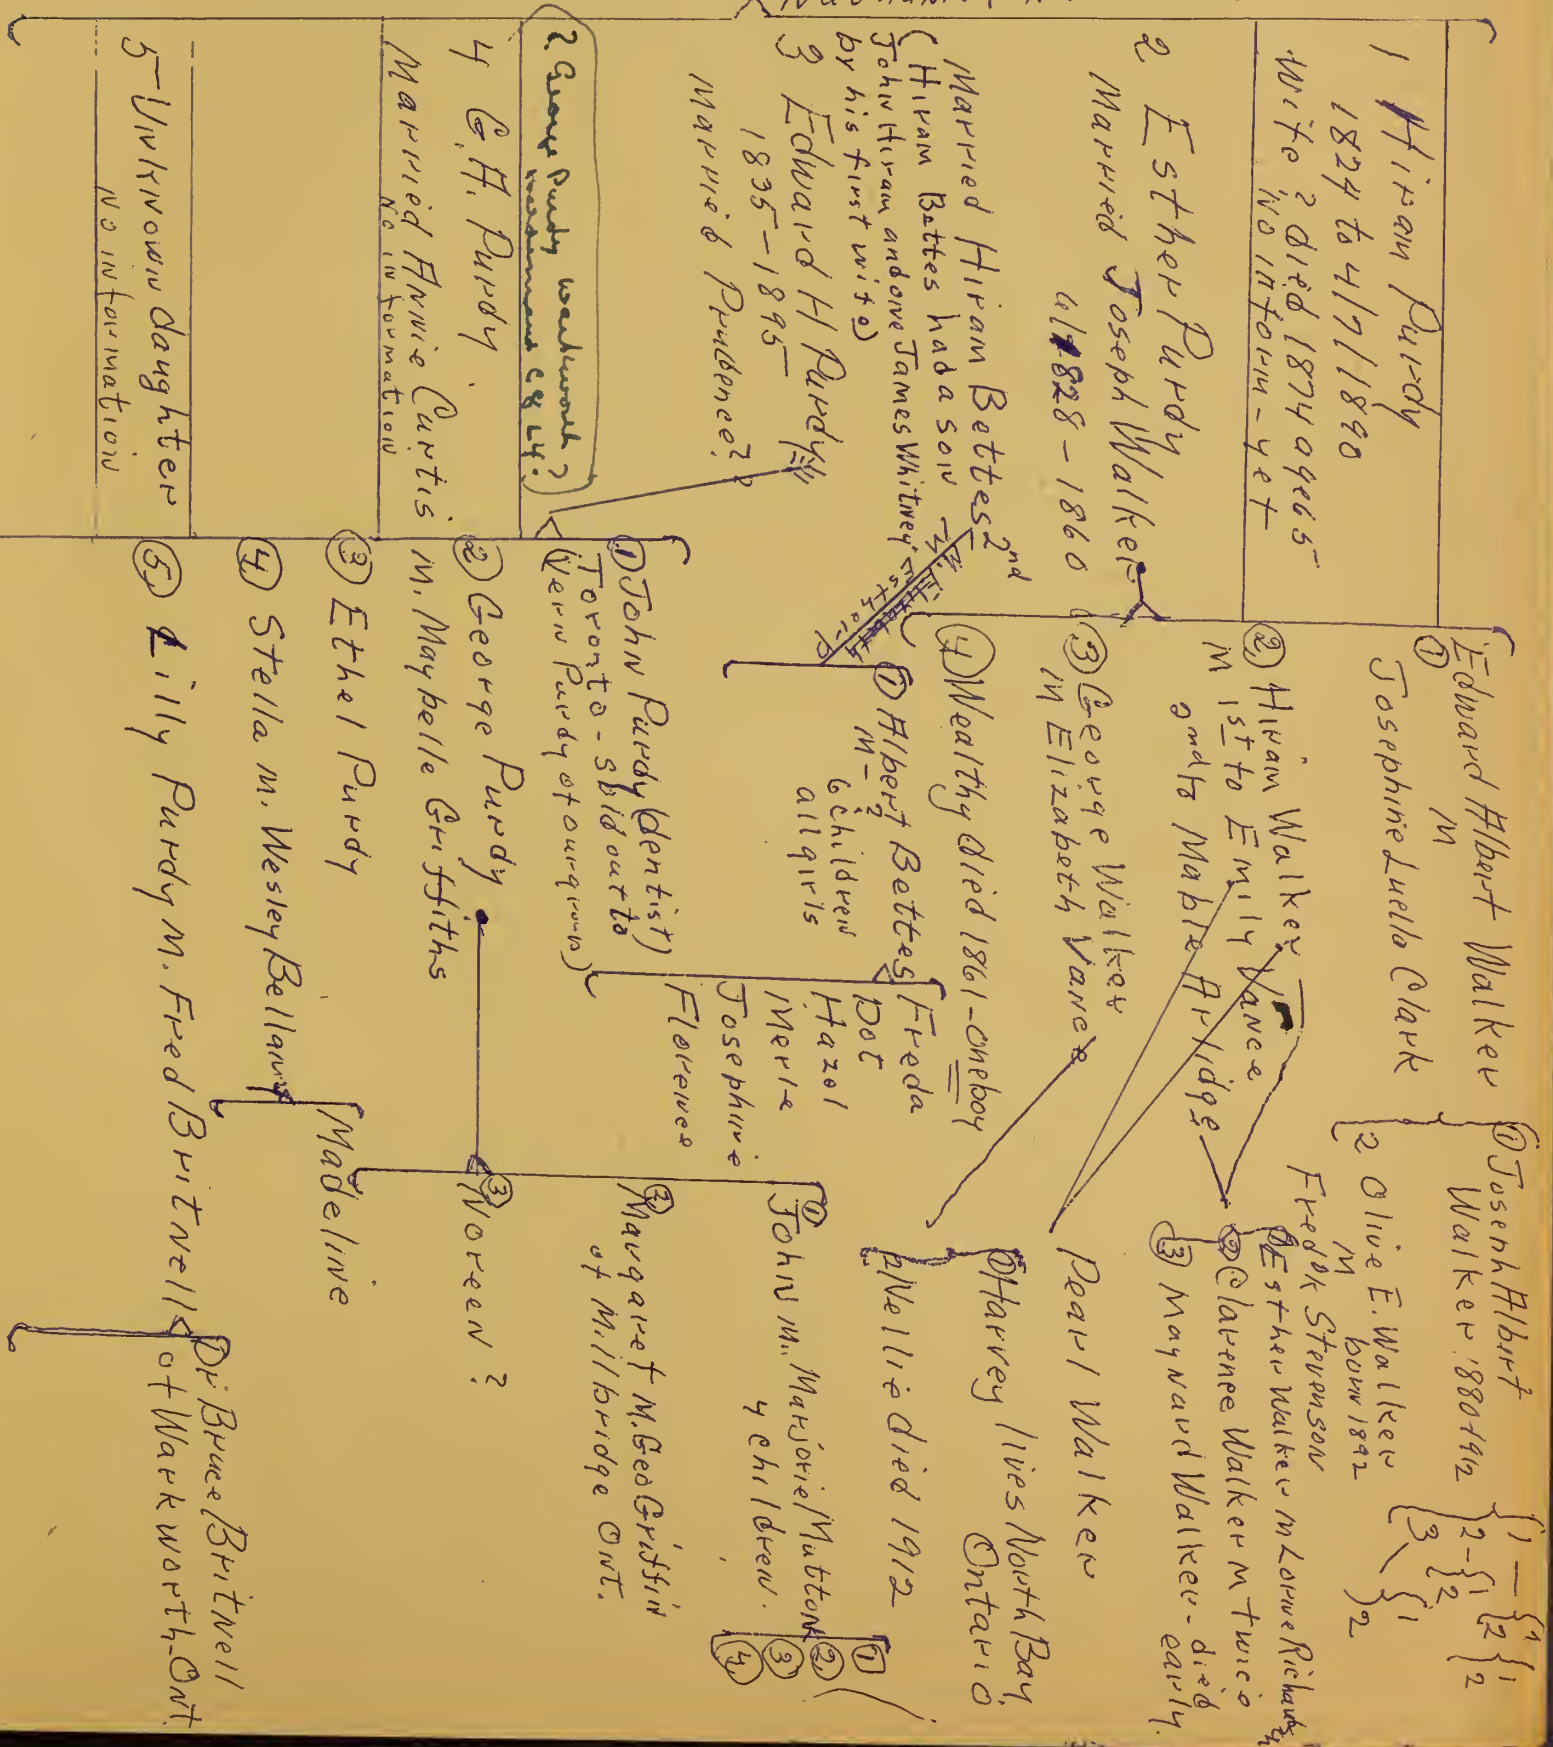 1 Hiram Purdy
1824 to 4/7/1890
Wife ? died 1874 age 65
No inform-yet
2 Esther Purdy
Married Joseph Walker
1828-1860
Married Hiram Bettes 2nd
(Hiram Bettes had a son
John Hiram and one James Whitney
by his first wife)
3 Edward H Purdy
1835-1895
Married Prudence??
? George Purdy Warkworth?
4 G.A. Purdy
Married Annie Curtis
No information
5-Unknown daughter
No information
Edward Albert Walker
① M
Josephine Luella Clark
② Hiram Walker
M 1st to Emily Vance
2nd to Mable Arlidge
③ George Walker
M Elizabeth Vance
④ Wealthy died 1861-one boy
Esther P
① Albert Bettes
M-?
6 children
all girls
Freda
Dot
Hazel
Merle
Josephine
Florence
① John Purdy (dentist)
Toronto-sold out to
(Vern Purdy of our group)
② George Purdy
M. Maybelle Griffiths
③ Ethel Purdy
④ Stella M. Wesley Bellamy
⑤ Lilly Purdy M. Fred Britnell
① Joseph Albert
Walker 1880+92
2 Olive E. Walker
M born 1892
Fredk Stevenson
① Esther Walker M Lorne
② Clarence Walker M twice
③ Maynard Walker-died
early
Pearl Walker
① Harvey lives North Bay
Ontario
2 Nellie died 1912
① John M. Marjorie Mutton
4 children.
① ② ③ ④
② Margaret M. Geo Griffin
of Millbridge Ont.
③ Noreen?
Madeline
① Dr Bruce Britnell
of Warkworth-Ont.
1 - { 1 2 { 1 2
2 - { 1 2
3 { 1 2